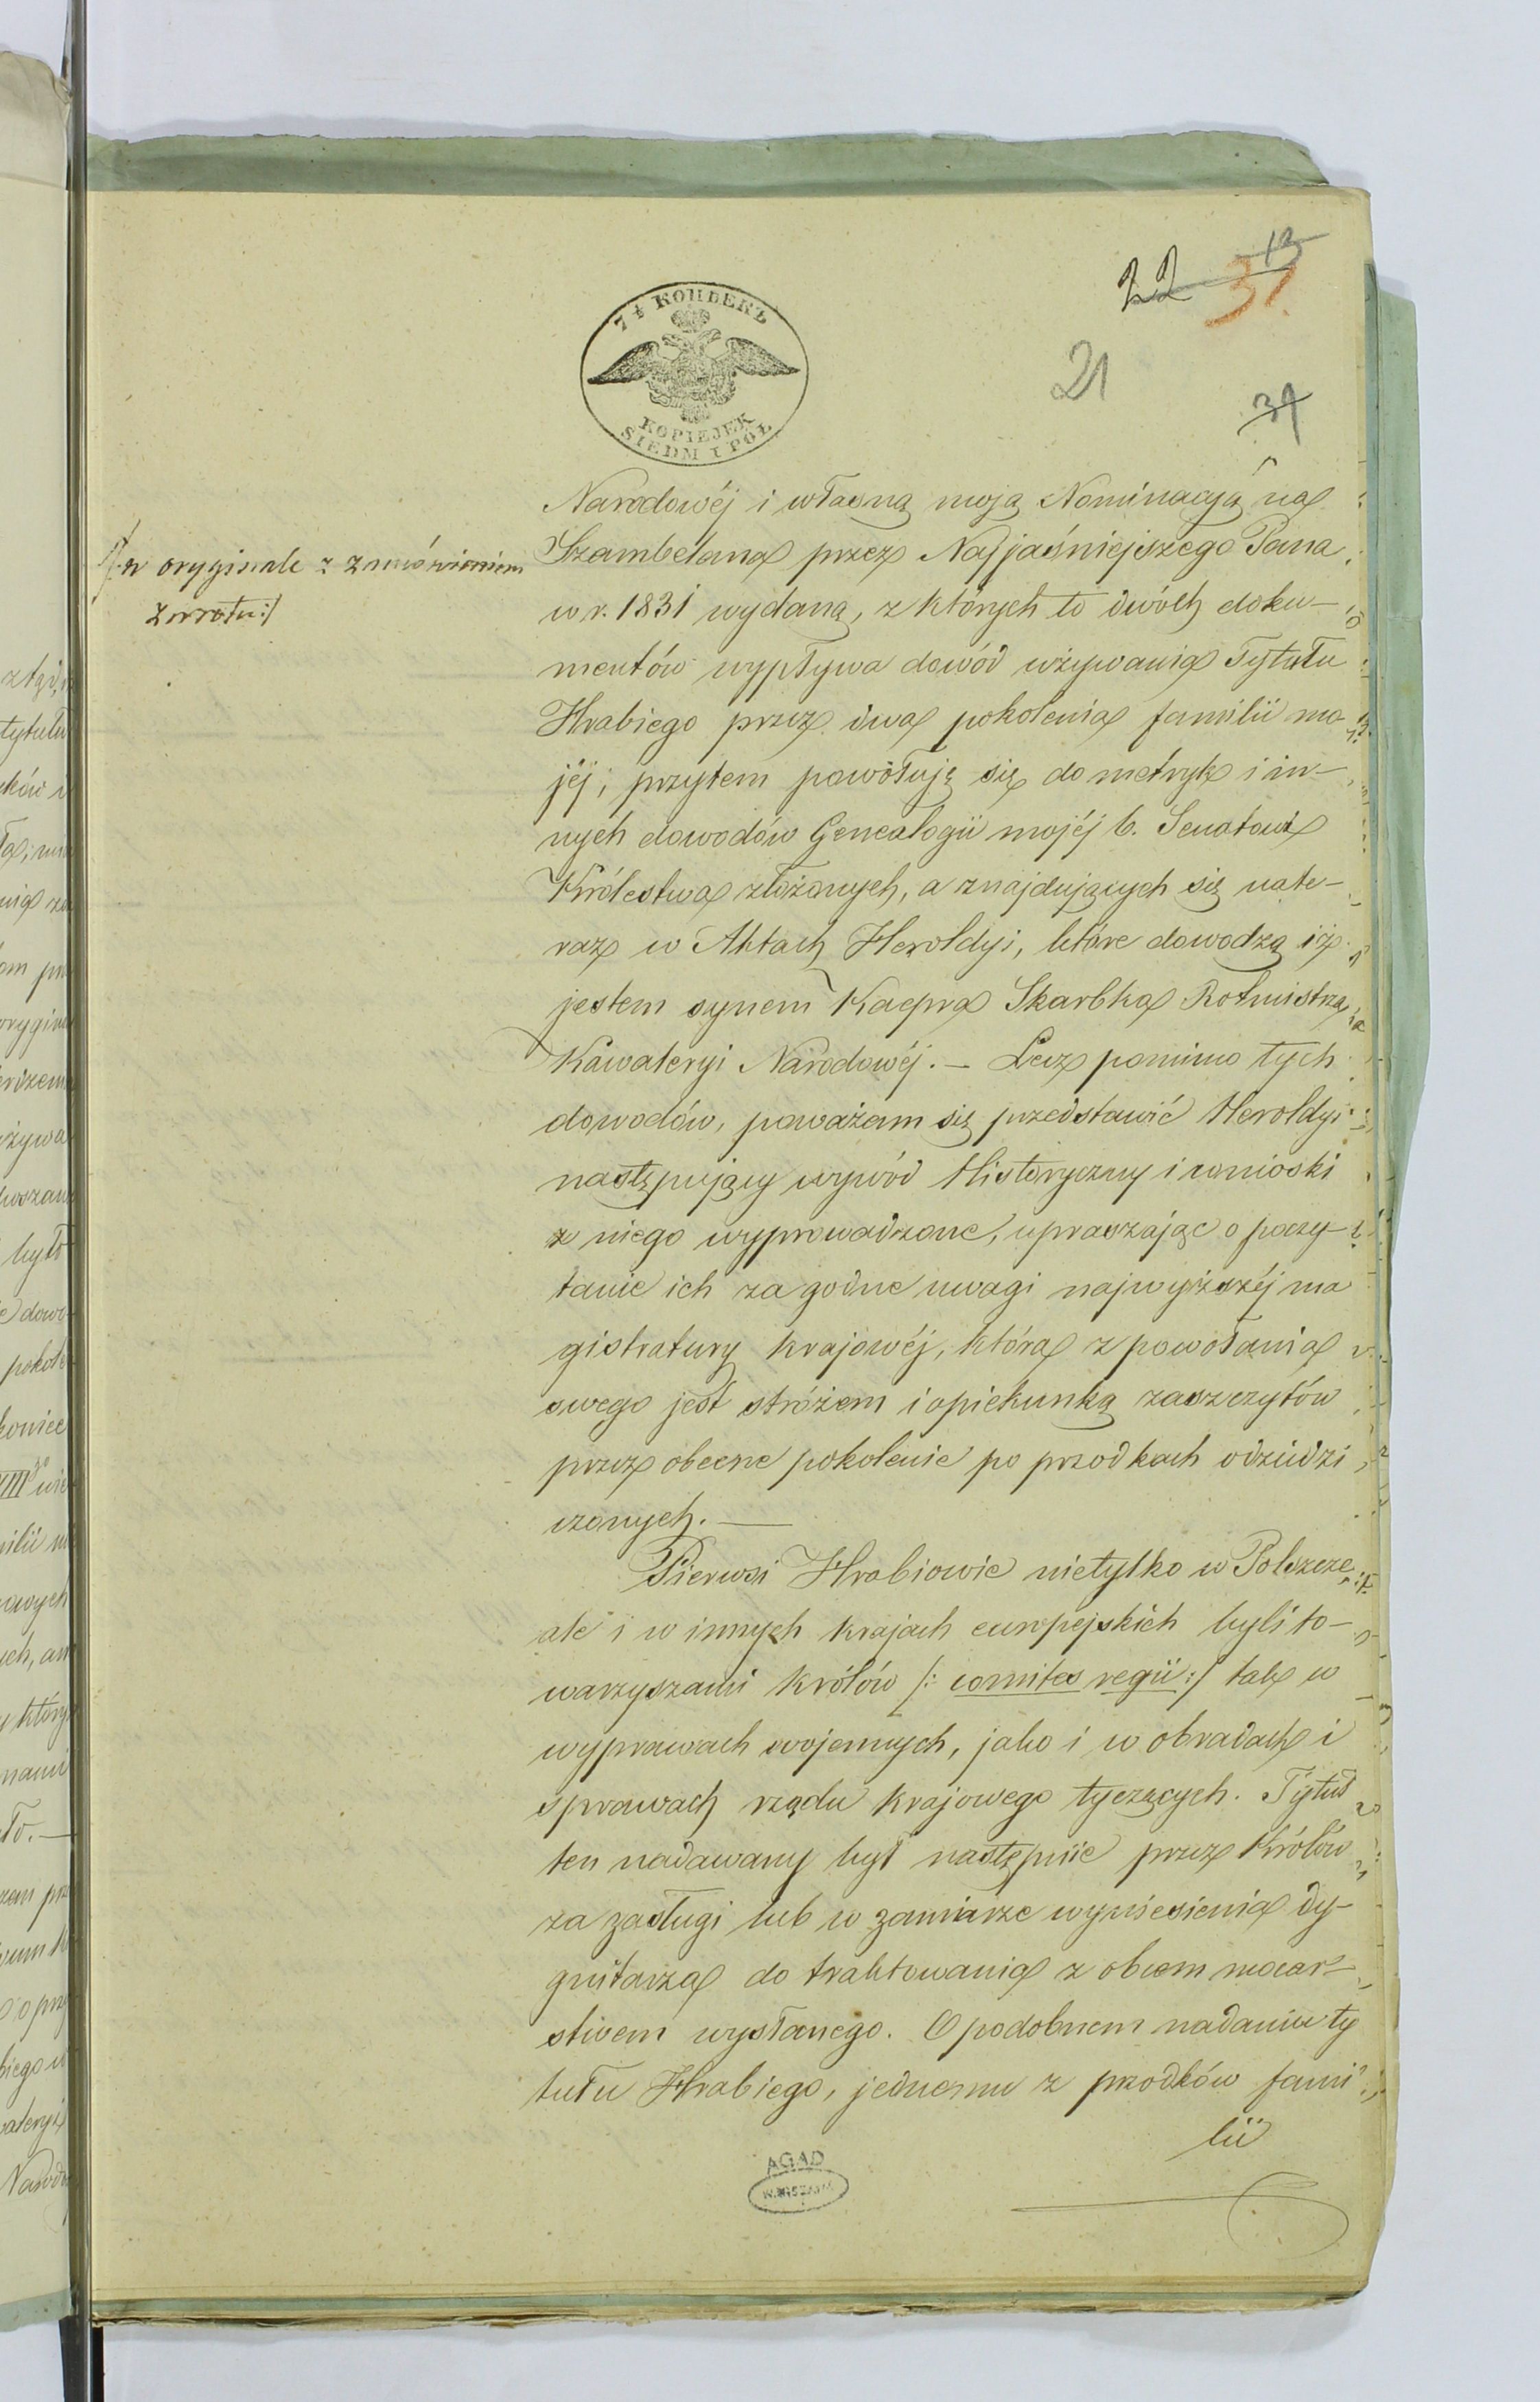 13
22 31
21
31
7½ КОПѢЕКЪ
KOPIEJEK
SIEDM I PÓŁ
/:w oryginale z zamówieniem
zwrotu:/
Narodowéj i własną moją Nominacyją na
Szambelana przez Najjaśniejszego Pana
w r. 1831 wydaną, z których to dwóch doku-
mentów wypływa dowód używania Tytułu
Hrabiego przez dwa pokolenia familii mo-
jéj; przytem powołuję się do metryk i in-
nych dowodów Genealogii mojéj b. Senatowi
Królestwa złożonych, a znajdujących się nate-
raz w Aktach Heroldyi, które dowodzą iż
jestem synem Kacpra Skarbka Rotmistrza
Kawaleryi Narodowéj. — Lecz pomimo tych
dowodów, poważam się przedstawić Heroldyi
następujący wywód Historyczny i wnioski
z niego wyprowadzone, upraszając o poczy-
tanie ich za godne uwagi najwyższéj ma
gistratury krajowéj, która z powołania
swego jest stróżem i opiekunką zaszczytów
przez obecne pokolenie po przodkach odziedzi
czonych. —
Pierwsi Hrabiowie nietylko w Polszcze,
ale i w innych krajach europejskich byli to-
warzyszami królów /: comites regii :/ tak w
wyprawach wojennych, jako i w obradach i
sprawach rządu krajowego tyczących. Tytuł
ten nadawany był następnie przez Królów
za zasługi lub w zamiarze wyniesienia dy-
gnitarza do traktowania z obcem mocar-
stwem wysłanego. O podobnem nadaniu ty
tułu Hrabiego, jednemu z przodków fami
lii
AGAD
WARSZAWA